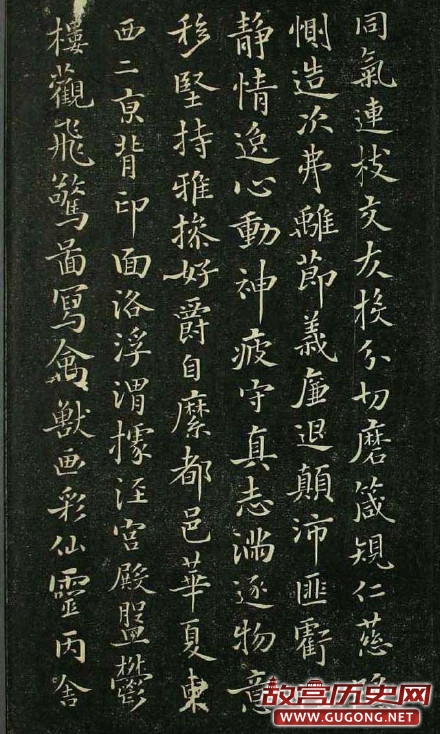 同氣連枝交友投分切磨箴規仁慈隱
惻造次弗離節義廉退顛沛匪虧
静情逸心動神疲守真志滿逐物意
移堅持雅操好爵自縻都邑華夏東
西二亰背邙面洛浮渭據涇宮殿盤鬱
樓觀飛驚啚寫禽獸画彩仙靈丙舍
故宫历史网
www.GUGONG.net